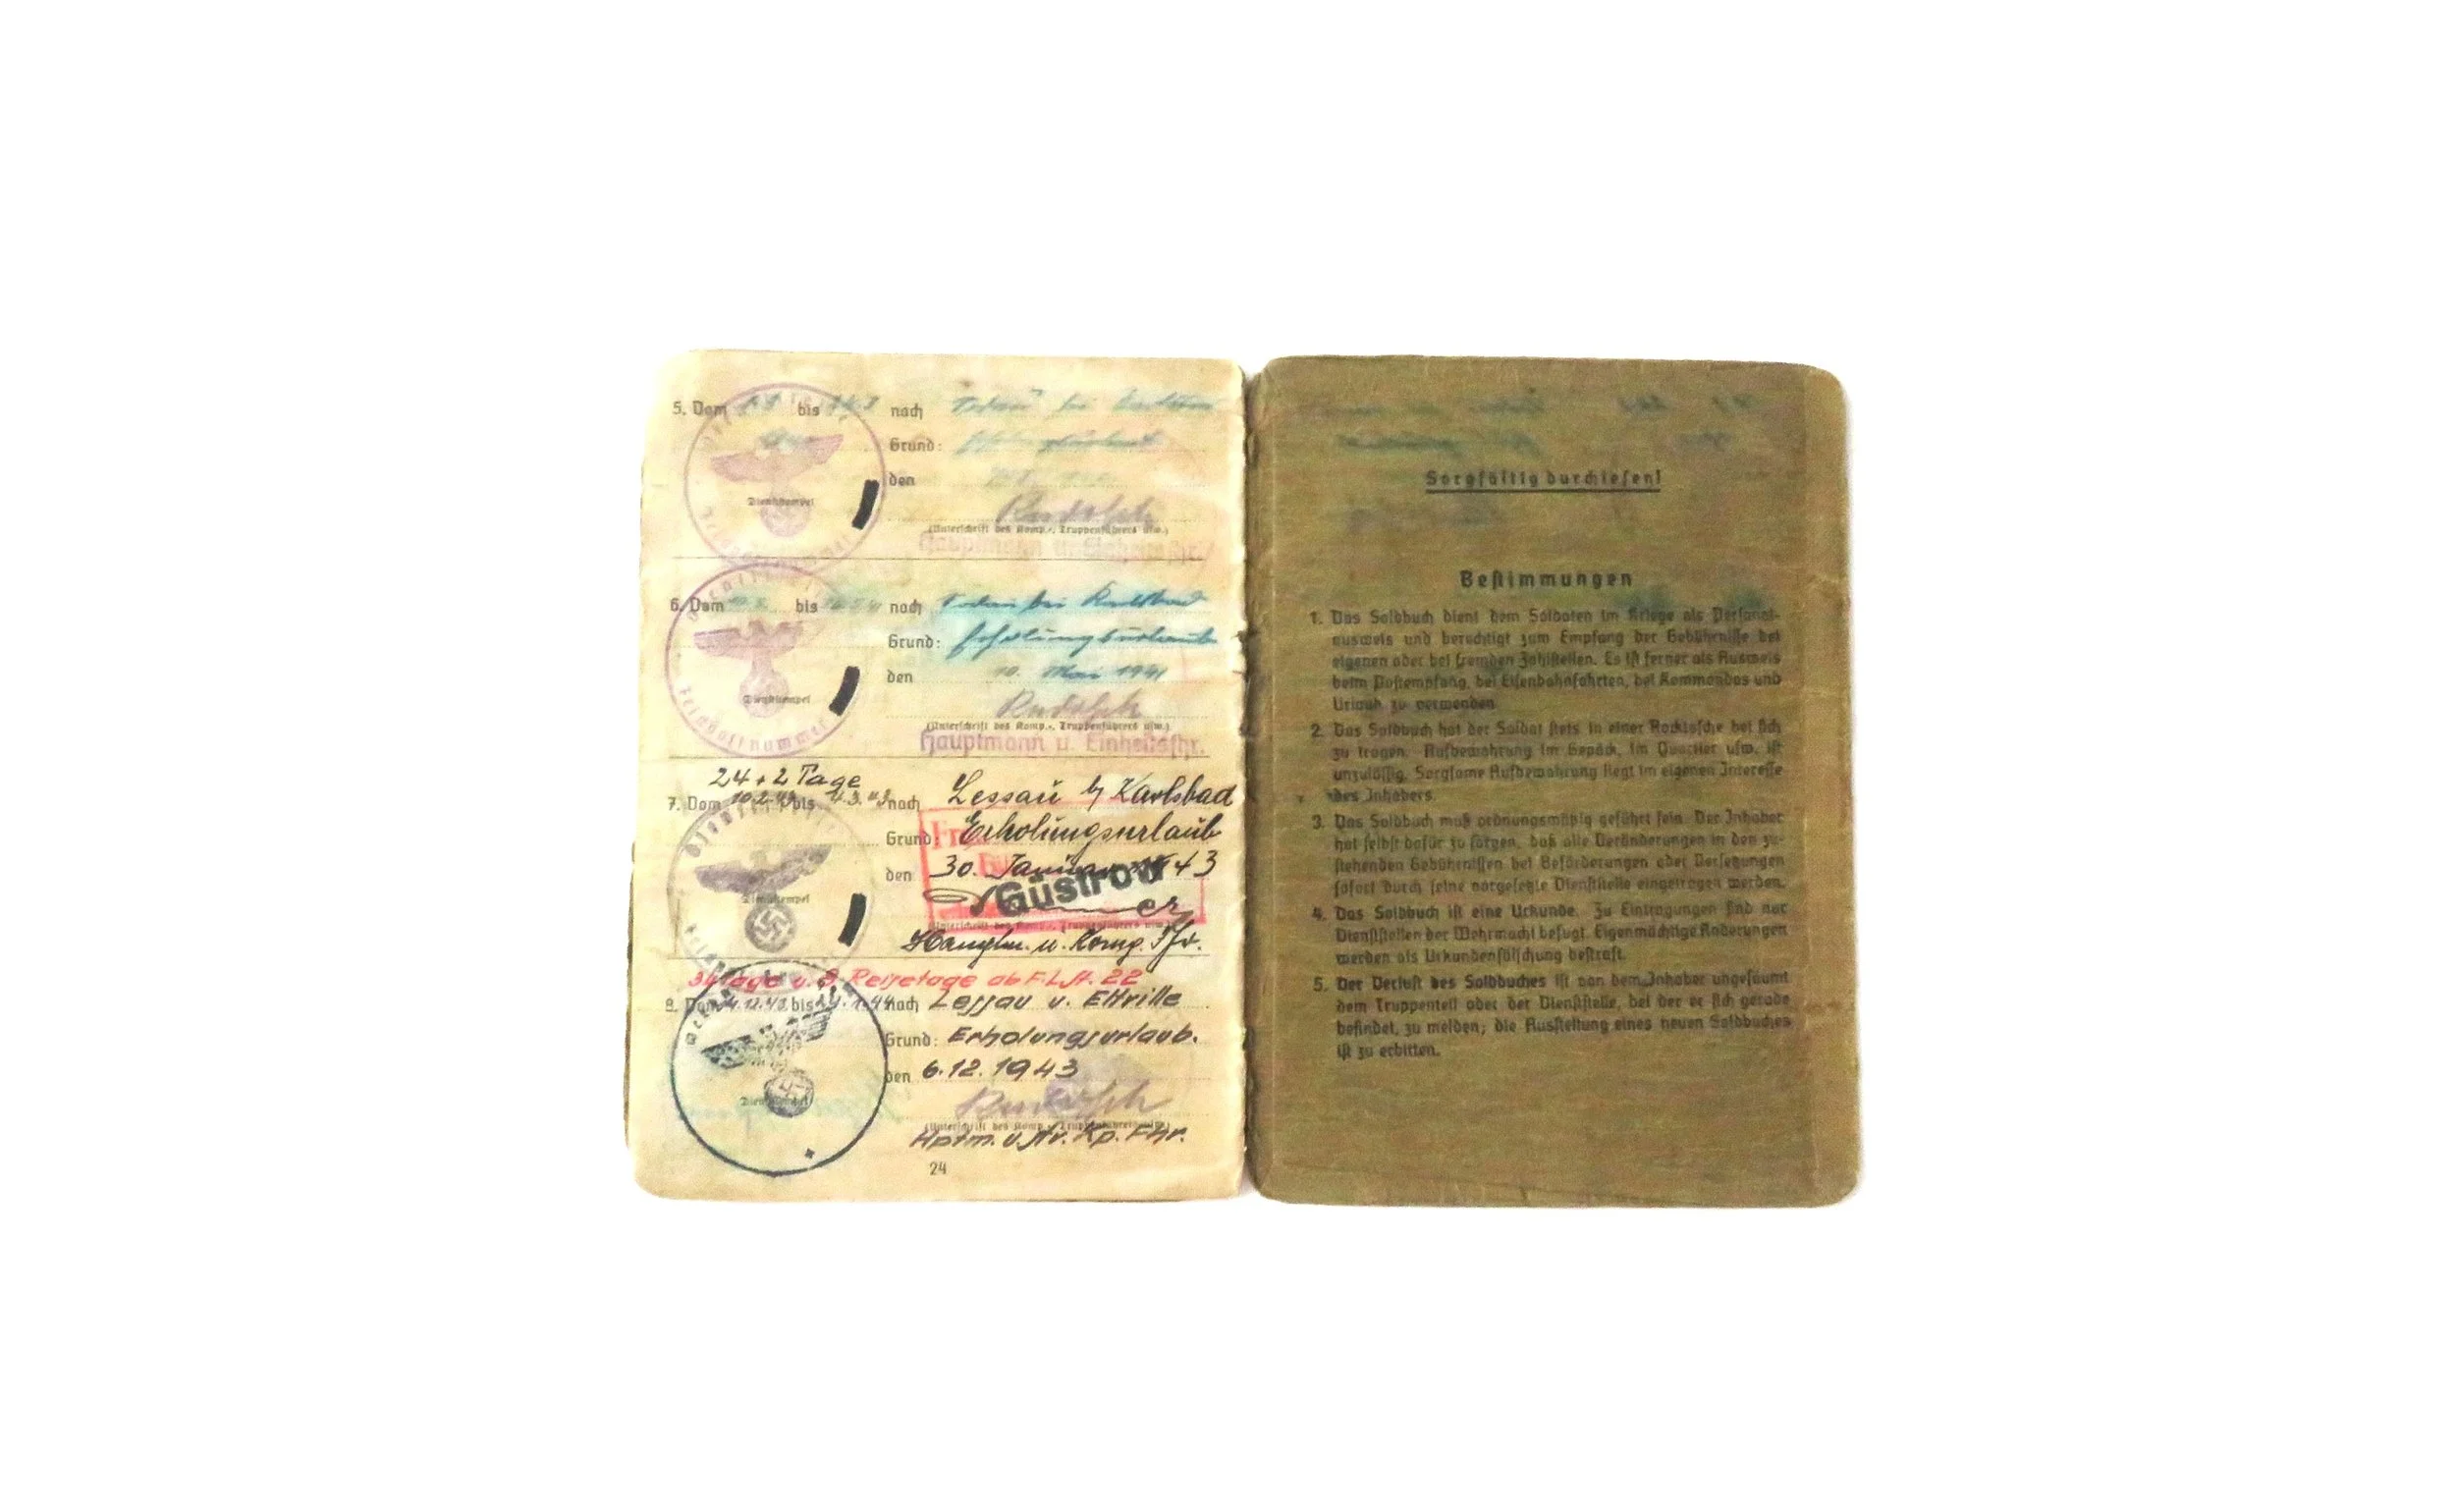 5. Vom bis nach
Grund:
den
Dienststempel
Rudolph
(Unterschrift des Komp.-, Truppenführers usw.)
Hauptmann u. Einheitsfhr.
6. Vom bis nach bei Karlsbad
Grund: Erholungsurlaub
den 10. Mai 1941
Dienststempel
Feldpostnummer
Rudolph
(Unterschrift des Komp.-, Truppenführers usw.)
Hauptmann u. Einheitsfhr.
24+2 Tage
7. Vom 10.2.43 bis 4.3.43 nach Lessau b/ Karlsbad
Grund: Erholungsurlaub
den 30. Januar 1943
Güstrow
Dienststempel
(Unterschrift des Komp.-, Truppenführers usw.)
Hauptm. u. Komp. Fhr.
Tage u. Reisetage ab F.L.St. 22
8. Vom bis nach Lessau u.
Grund: Erholungsurlaub.
den 6.12.1943
Dienststempel
Rudolph
(Unterschrift des Komp.-, Truppenführers usw.)
Hptm. u. Kp. Fhr.
24
Sorgfältig durchlesen!
Bestimmungen
1. Das Soldbuch dient dem Soldaten im Kriege als Personal-
ausweis und berechtigt zum Empfang der Gebührnisse bei
eigenen oder bei fremden Zahlstellen. Es ist ferner als Ausweis
beim Postempfang, bei Eisenbahnfahrten, bei Kommandos und
Urlaub zu verwenden.
2. Das Soldbuch hat der Soldat stets in einer Rocktasche bei sich
zu tragen. Aufbewahrung im Gepäck, im Quartier usw. ist
unzulässig. Sorgsame Aufbewahrung liegt im eigenen Interesse
des Inhabers.
3. Das Soldbuch muß ordnungsmäßig geführt sein. Der Inhaber
hat selbst dafür zu sorgen, daß alle Veränderungen in den zu-
stehenden Gebührnissen bei Beförderungen oder Versetzungen
sofort durch seine vorgesetzte Dienststelle eingetragen werden.
4. Das Soldbuch ist eine Urkunde. Zu Eintragungen sind nur
Dienststellen der Wehrmacht befugt. Eigenmächtige Änderungen
werden als Urkundenfälschung bestraft.
5. Der Verlust des Soldbuches ist von dem Inhaber ungesäumt
dem Truppenteil oder der Dienststelle, bei der er sich gerade
befindet, zu melden; die Ausstellung eines neuen Soldbuches
ist zu erbitten.